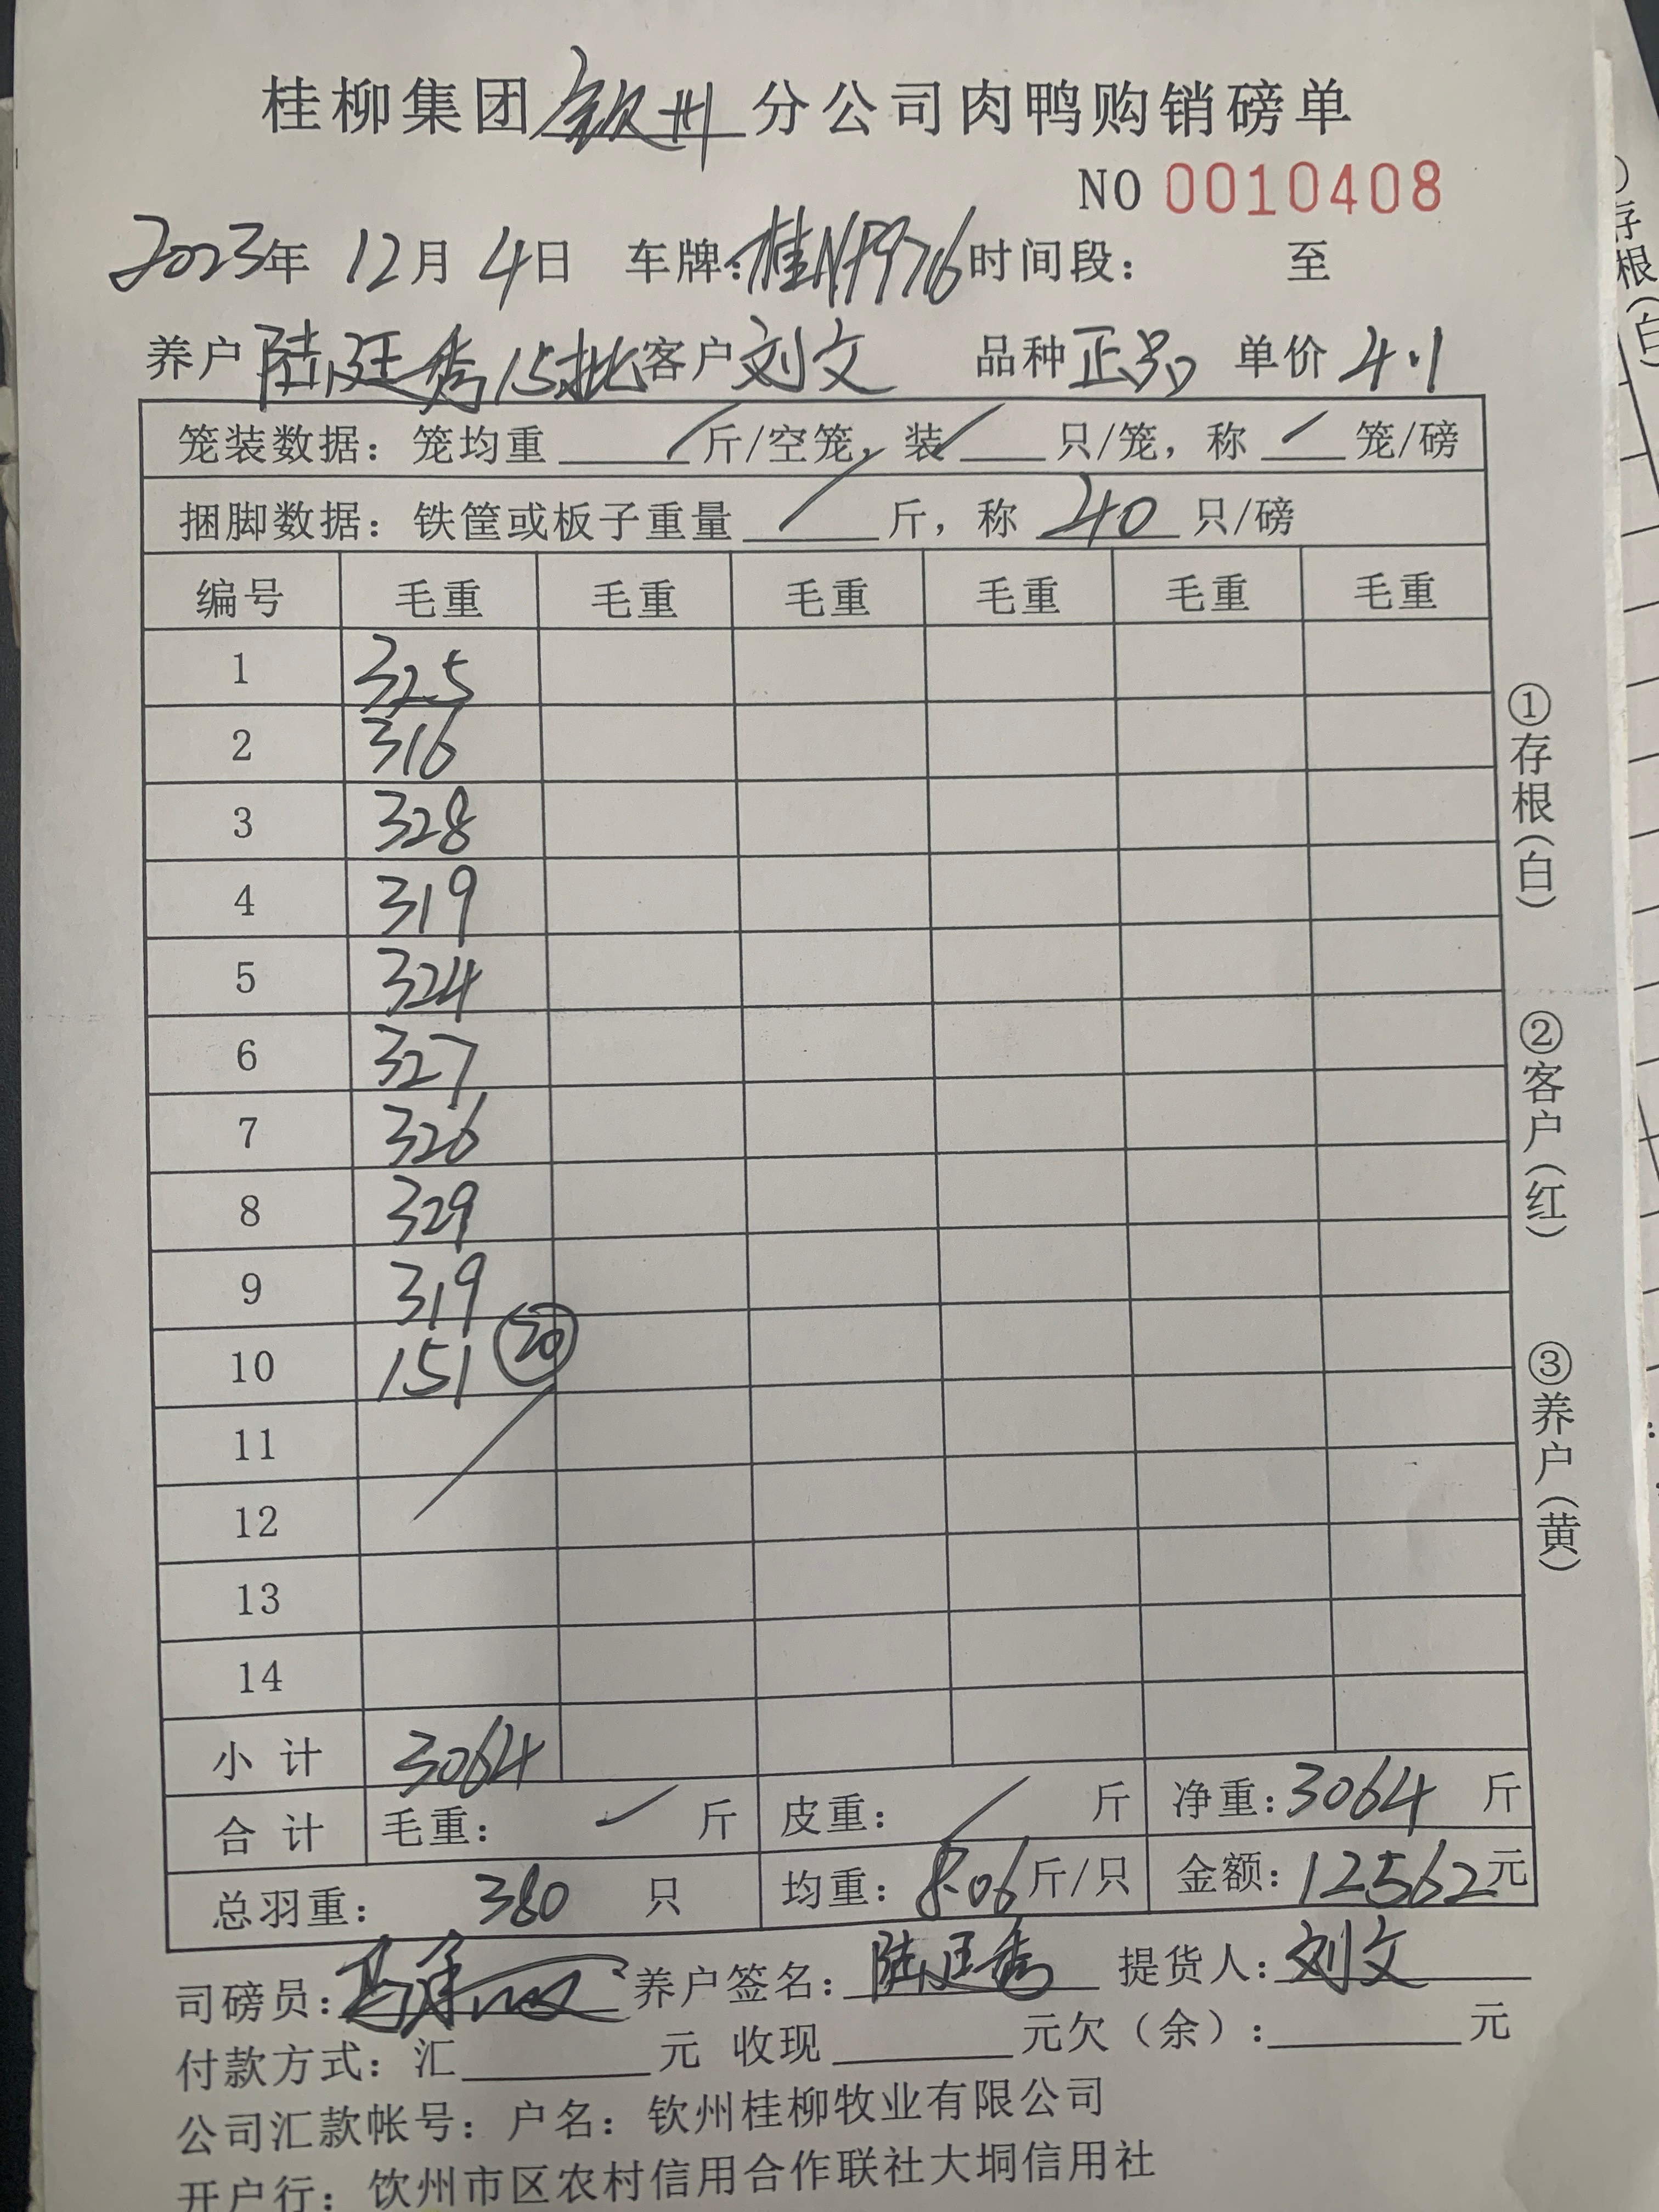 桂柳集团钦州分公司肉鸭购销磅单
NO 0010408
2023年 12月 4日 车牌:桂NF976 时间段: 至
养户 陆廷秀15批 客户 刘文 品种 正品 单价 4.1
笼装数据: 笼均重 / 斤/空笼, 装 / 只/笼, 称 / 笼/磅
捆脚数据: 铁筐或板子重量 / 斤, 称 40 只/磅
编号 毛重 毛重 毛重 毛重 毛重 毛重
1 325
2 316
3 328
4 319
5 324
6 327
7 326
8 329
9 319
10 151 ⑳
11
12
13
14
小计 3064
合计 毛重: / 斤 皮重: / 斤 净重: 3064 斤
总羽重: 380 只 均重: 8.06 斤/只 金额: 12562元
司磅员: 养户签名: 陆廷秀 提货人: 刘文
付款方式: 汇 元 收现 元欠（余）: 元
公司汇款帐号: 户名: 钦州桂柳牧业有限公司
开户行: 饮州市区农村信用合作联社大垌信用社
①存根(白)
②客户(红)
③养户(黄)